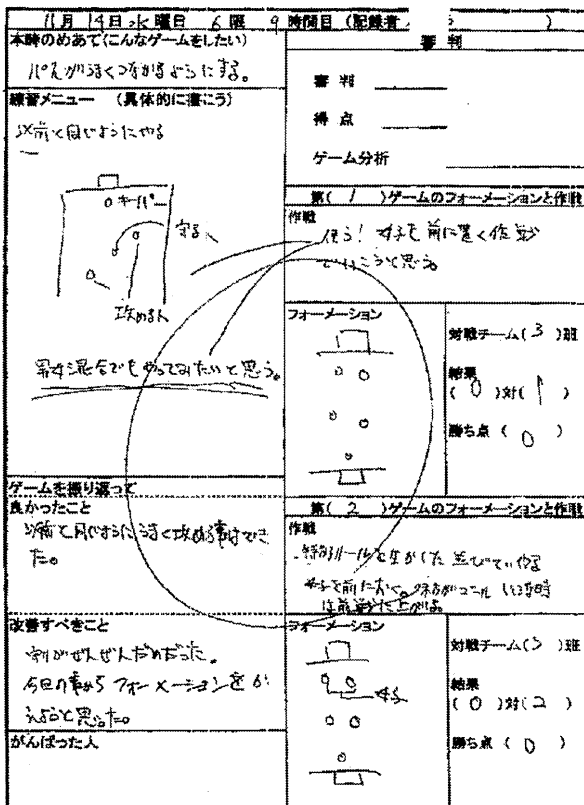 11月14日水曜日 6限 9時間目(記録者 )
本時のめあて(こんなゲームをしたい)
パスがうまくつながるようにする。
練習メニュー (具体的に書こう)
以前と同じようにやる
キーパー
守る
攻める人
男女混合でもやってみたいと思う。
ゲームを振り返って
良かったこと
以前と同じようにうまく攻める事はでき
た。
改善すべきこと
守りがぜんぜんだめだった。
今回の事から フォーメーションをか
えようと思った。
がんばった人
審判
審判
得点
ゲーム分析
第( 1 )ゲームのフォーメーションと作戦
作戦
女子を前に置く作戦
でいこうと思う。
フォーメーション
対戦チーム(3)班
結果
(0)対(1)
勝ち点(0)
第( 2 )ゲームのフォーメーションと作戦
作戦
特別ルールを生かした
女子を前におく。
フォーメーション
女子
対戦チーム(5)班
結果
(0)対(2)
勝ち点(0)